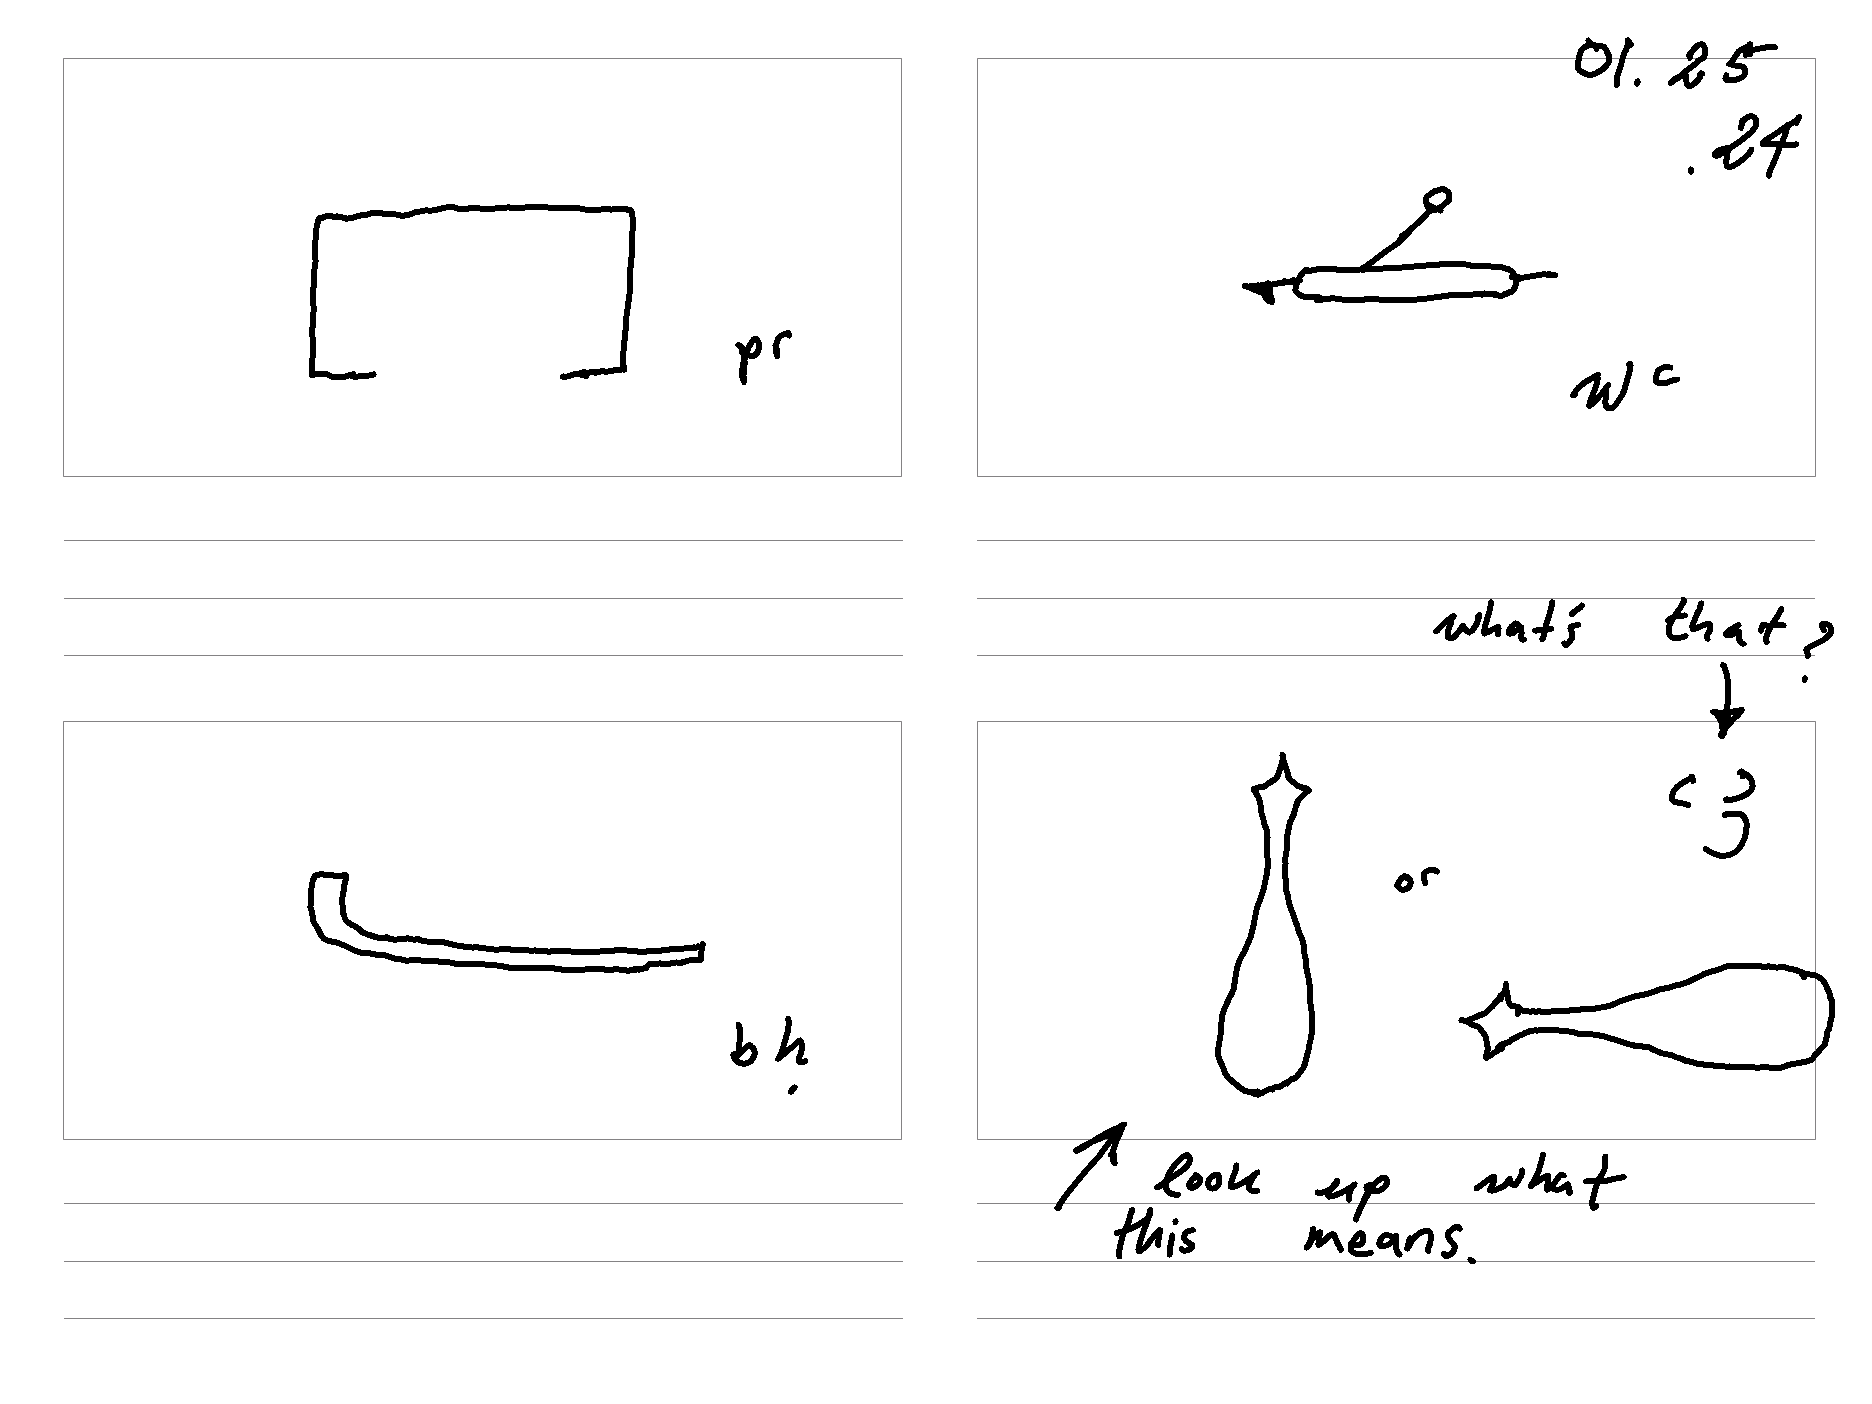 01.25
.24
pr
wc
what's that?
bḥ
ꜥꜣ
or
look up what
this means.